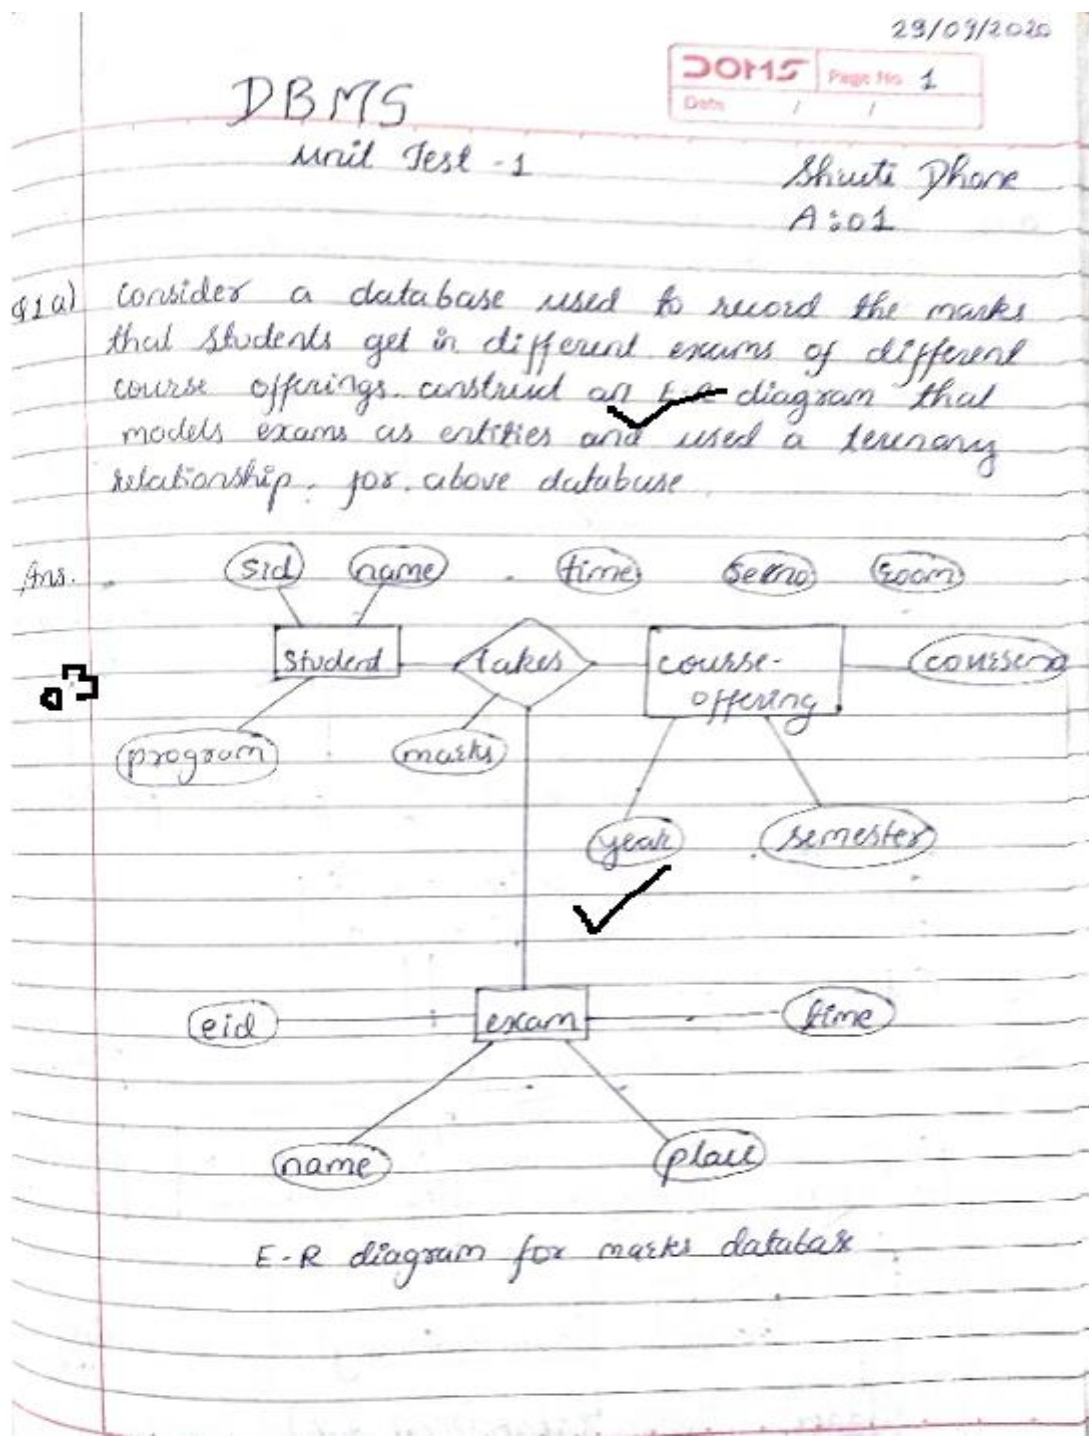 29/09/2020
DOMS Page No. 1
Date / /
DBMS
Unit Test - 1
Shruti Dhone
A:01
Q1a) Consider a database used to record the marks
that students get in different exams of different
course offerings. construct an E-R diagram that
models exams as entities and used a ternary
relationship. for. above database.
Ans.
sid name time secno room
Student takes course-
offering
courseno
program marks
year semester
eid exam time
name place
E-R diagram for marks database